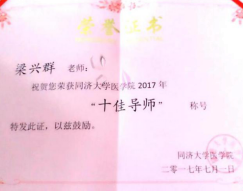 荣誉证书
梁兴群 老师：
祝贺您荣获同济大学医学院 2017 年
“十佳导师” 称号
特发此证，以兹鼓励。
同济大学医学院
二〇一七年七月一日